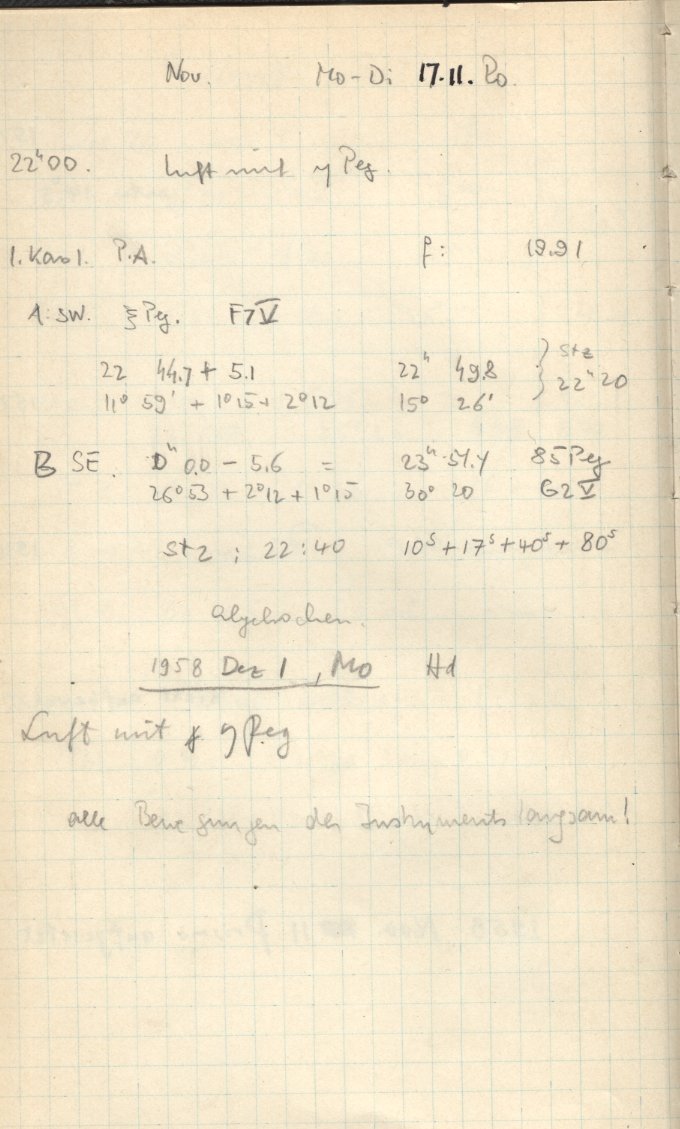 Nov. Mo-Di 17.11. Ro.
22ʰ00. Luft mit η Peg.
1. Kas 1. P.A. f: 19.91
A: SW. ξ Peg. F7V
22 44.7 + 5.1 22ʰ 49.8 } Stz
11° 59' + 1°15 + 2°12 15° 26' } 22ʰ 20
B SE. 0ʰ 0.0 - 5.6 = 23ʰ 54.4 85 Peg
26°53 + 2°12 + 1°15 30° 20 G2V
Stz : 22:40 10ˢ + 17ˢ + 40ˢ + 80ˢ
abgebrochen.
1958 Dez 1, Mo Hd
Luft mit η Peg
alle Bewegungen des Instruments langsam!